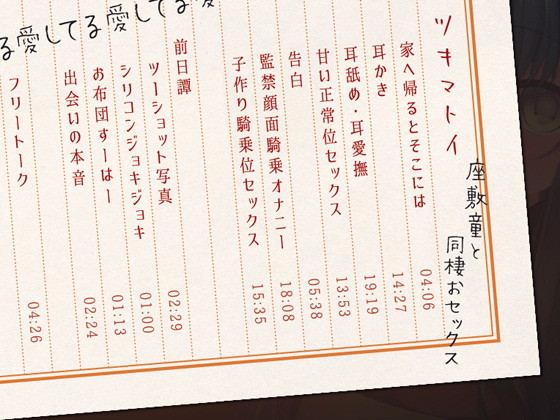 座敷童と
同棲おセックス
ツキマトイ
家へ帰るとそこには 04:06
耳かき 14:27
耳舐め・耳愛撫 19:19
甘い正常位セックス 13:53
告白 05:38
監禁顔面騎乗オナニー 18:08
子作り騎乗位セックス 15:35
前日譚
ツーショット写真 02:29
シリコンジョキジョキ 01:00
お布団すーはー 01:13
出会いの本音 02:24
フリートーク 04:26
る愛してる愛してる愛